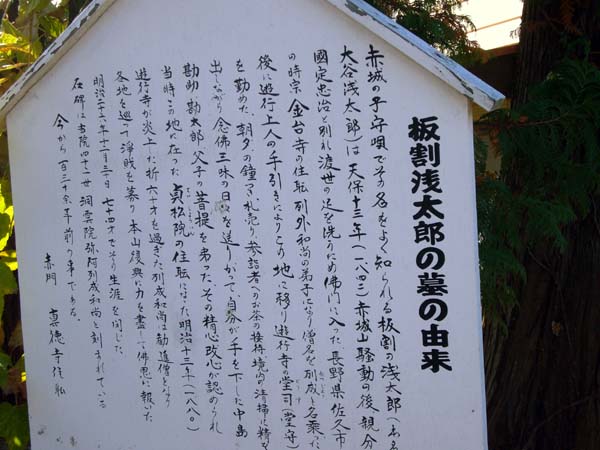 板割浅太郎の墓の由来
赤城の子守唄でその名をよく知られる板割の浅太郎(
大谷浅太郎)は天保十三年(一八四二)赤城山騒動の後親分
国定忠治と別れ渡世の足を洗うため佛門に入った。長野県佐久市
の時宗 金台寺の住転 列外和尚の弟子になり僧名を列成と名乗った
後に遊行上人の手引きによりこの地に移り遊行寺の堂司(堂守)
を勤めた、朝夕の鐘つき札売り、参詣者へのお茶の接待、境内の清掃に精を
出しながら念佛三昧の日々を送りかつて、自分が手を下した中島
勘助、勘太郎、父子の菩提を弔った。その精心改心が認められ
当時この地に在った 貞松院の住転になった 明治十三年(一八八〇)
遊行寺が炎上した折 六十才を過ぎた列成和尚は勧進僧となり
各地を巡って浄財を募り本山復興に力を盡して佛恩に報いた
明治二十六年十二月二日 七十四才でその生涯を閉じた
石碑は当院四十二世 洞雲院弥阿列成和尚と刻まれている
今から一百三十余年前の事である。
真徳寺住転